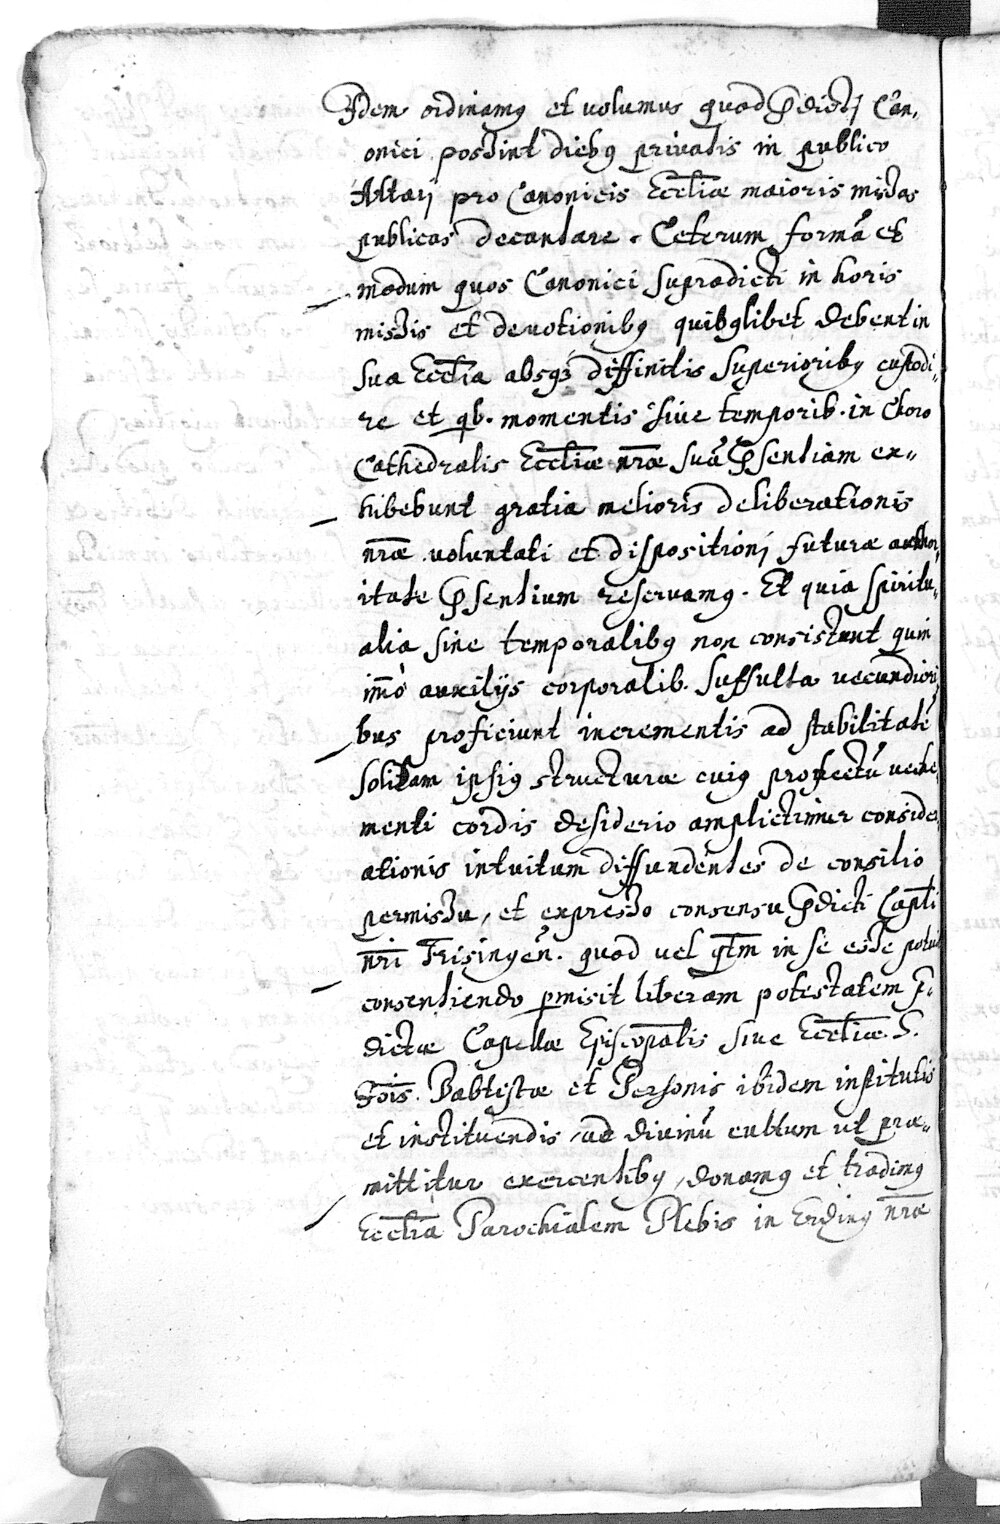 Idem ordinamꝰ et volumus quod p̄dictj Can,
onici possint diebꝰ priuatis in publico
Altarj pro Canonicis Eccl̄iæ maioris missas
publicas decantare. Ceterum formā et
modum quos Canonici supradicti in horis
missis et deuotionibꝰ quibꝰlibet debent in
sua Eccl̄ia absqꝫ diffinitis superioribꝰ custodi,,
re et qb. momentis siue temporib. in Choro
Cathedralis Eccl̄iæ nr̄æ suā p̄sentiam ex,,
hibebunt gratia melioris deliberationis
nr̄æ voluntati et dispositionj futuræ author,,
itate p̄sentium reseruamꝰ. Et quia spiritu,,
alia sine temporalibꝰ non consistunt quin
im̄ò auxilijs corporalib. suffulta uecundiori
bus proficiunt incrementis ad stabilitatē
solidam ipsiꝰ structuræ cuiꝰ profectū vehe
menti cordis desiderio amplictimur conside,
ationis intuitum diffundentes de consilio
permissu, et expresso consensu p̄dicti Capl̄i
nr̄i Frisingen̄. quod vel qt̄m in se esse potuit
consentiendo pmisit liberam potestatem p̄,
dictæ Capellæ Episcopalis siue Eccl̄iæ S.
Jois. Babtistæ et Personis ibidem institutis
et instituendis ad diuinū cultum ut præ,,
mittitur exercentibꝰ, donamꝰ et tradimꝰ
Eccl̄ia Parochialem Plebis in Erding nr̄æ